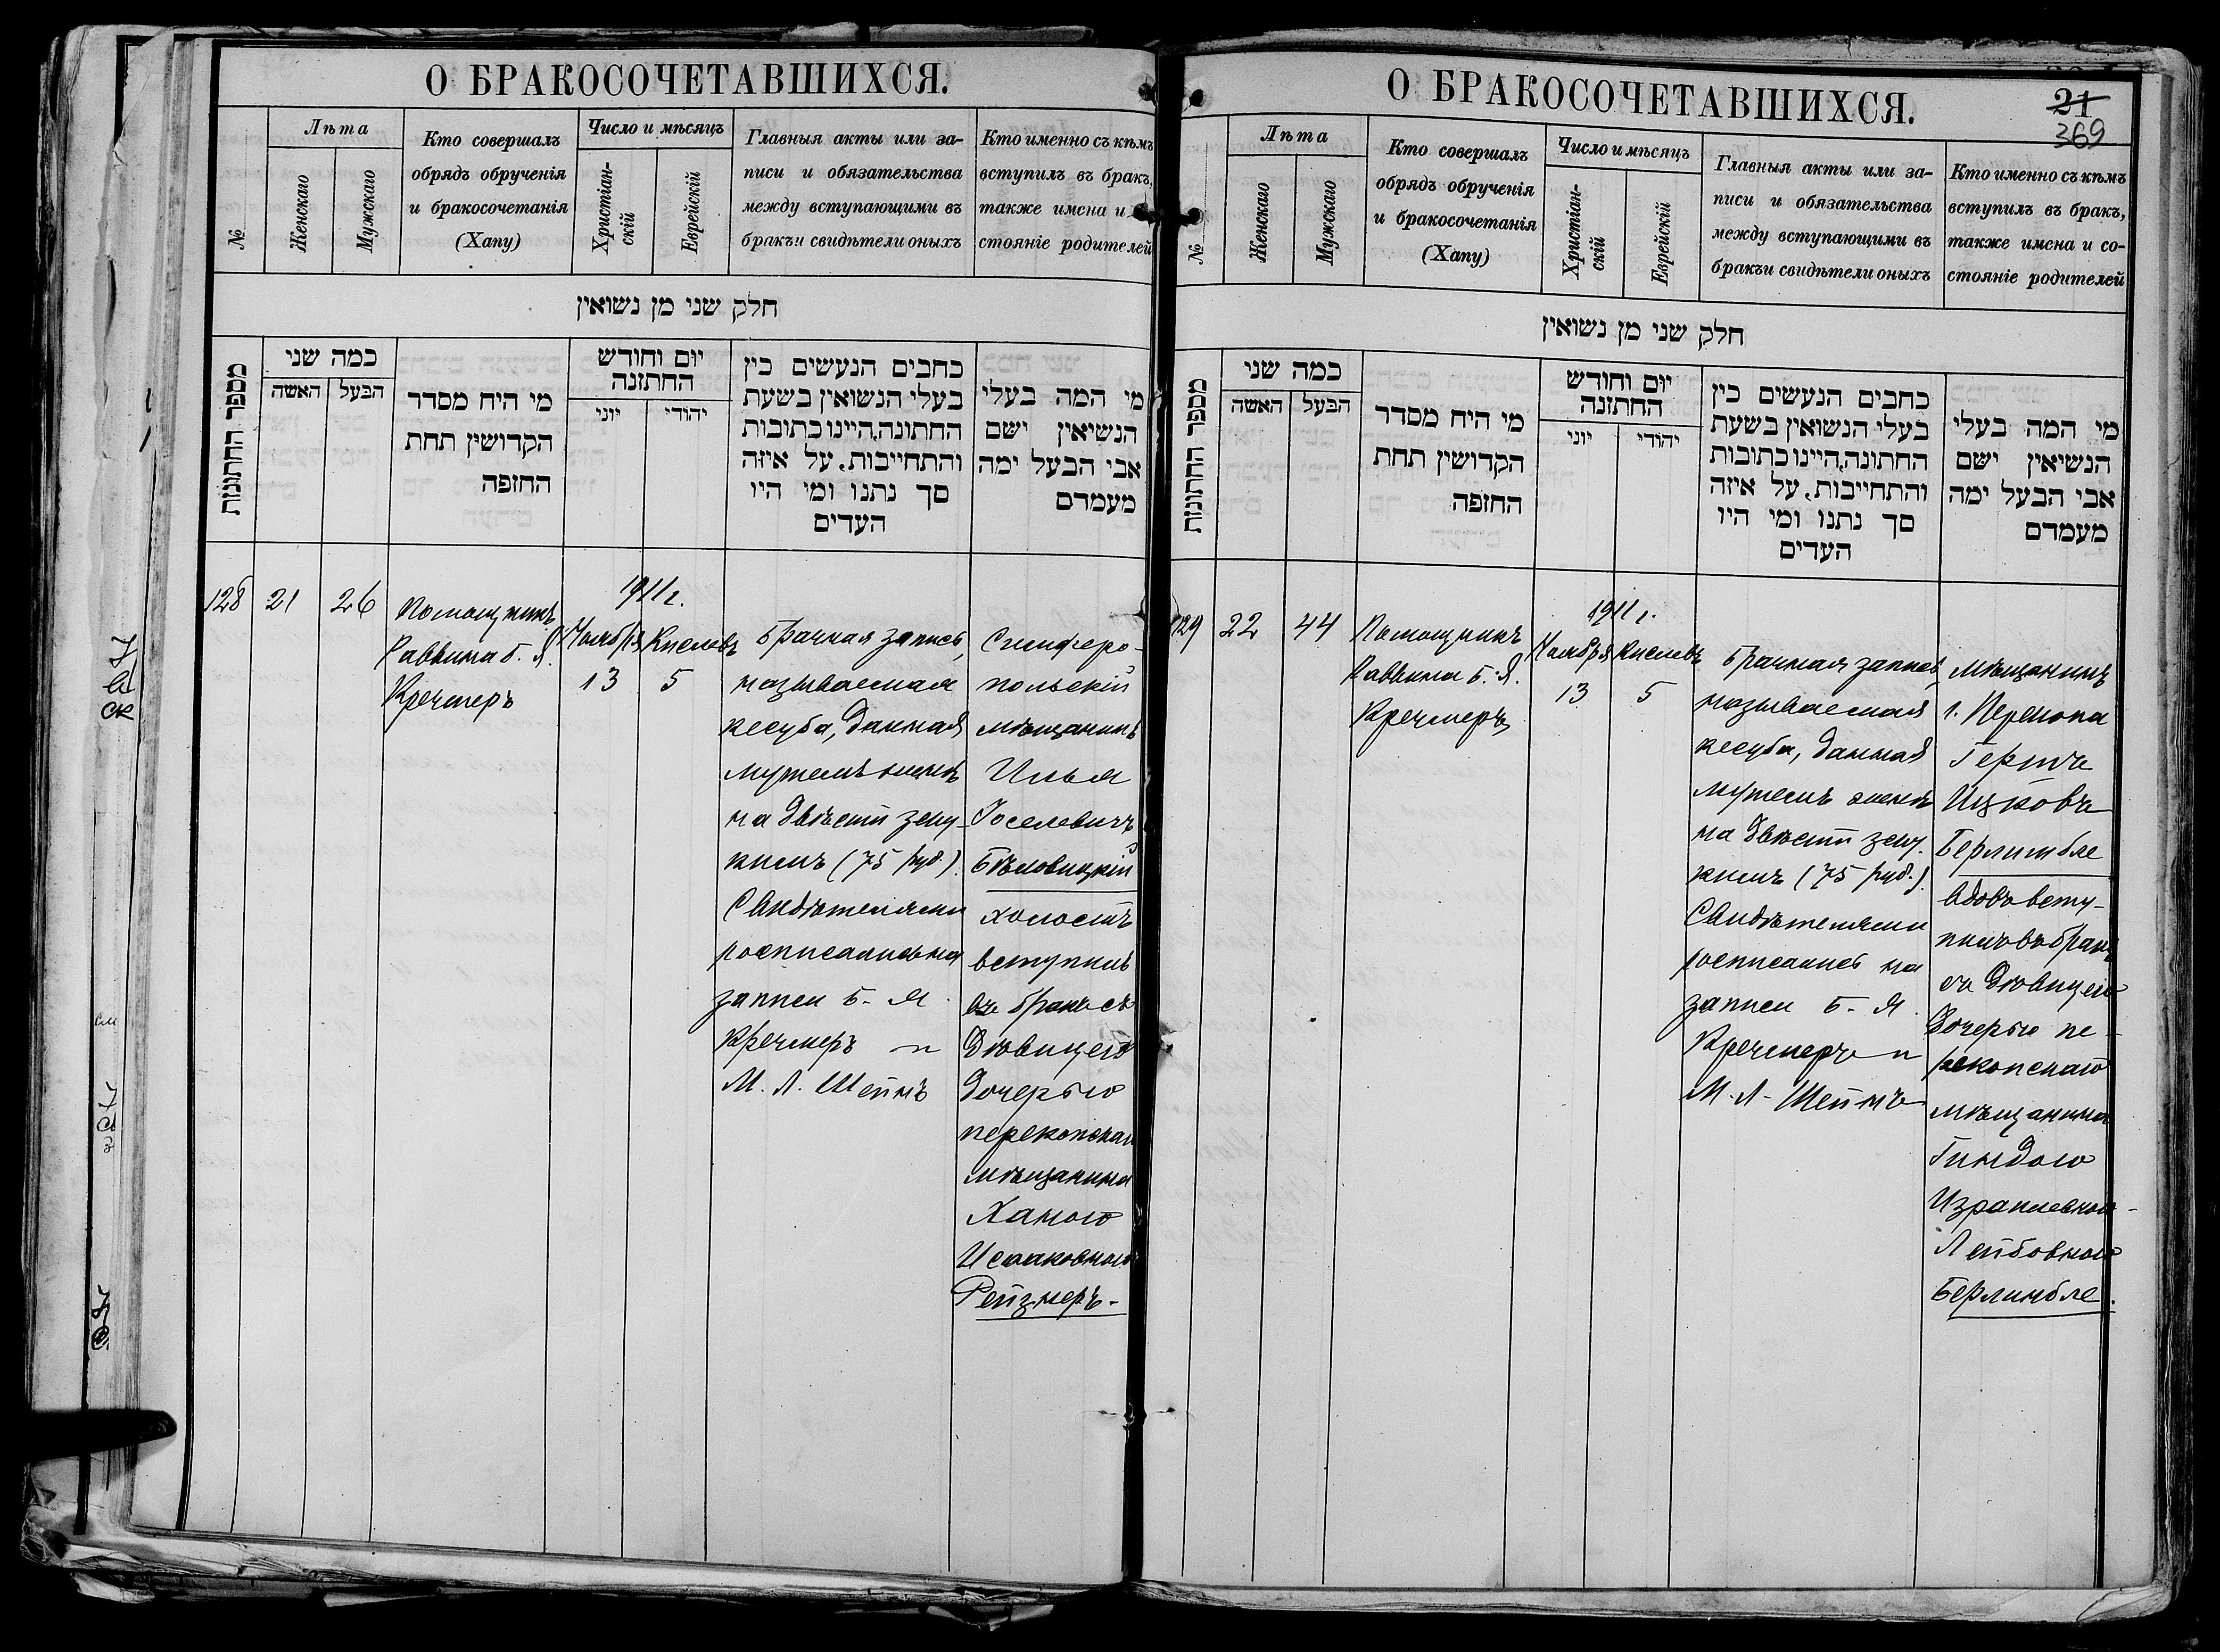 О БРАКОСОЧЕТАВШИХСЯ.
№
Лѣта
Женскаго
Мужскаго
Кто совершалъ
обрядъ обрученія
и бракосочетанія
(Хапу)
Число и мѣсяцъ
Христіан-
скій
Еврейскій
Главныя акты или за-
писи и обязательства
между вступающими въ
бракъ и свидѣтели оныхъ
Кто именно съ кѣмъ
вступилъ въ бракъ,
также имена и
стояніе родителей
חלק שני מן נשואין
מספר החתונות
כמה שני
האשה
הבעל
מי היח מסדר
הקדושין תחת
החופה
יום וחודש
החתונה
יוני
יהודי
כתבים הנעשים כין
בעלי הנשואין בשעת
החתונה, היינו כתובות
והתחייבות. על איזה
סך נתנו ומי היו
העדים
מי המה בעלי
הנשיאין ישם
אבי הבעל ימה
מעמדם
128
21
26
Помощникъ
Раввина Б. Я.
Кречмеръ
1911 г.
Ноября
13
Кислевъ
5
Брачная запись,
называемая
кесуба, данная
мужемъ женѣ
на двѣсти зеку-
кимъ (75 руб.).
Свидѣтелями
росписались на
записи Б. Я.
Кречмеръ и
М. Л. Шейнъ
Симферо-
польскій
мѣщанинъ
Илья
Іоселевичъ
Бѣловицкій
холостъ
вступилъ
въ бракъ съ
дѣвицею
дочерью
перекопскаго
мѣщанина
Ханою
Исааковною
Рейзнеръ.
О БРАКОСОЧЕТАВШИХСЯ.
21
369
№
Лѣта
Женскаго
Мужскаго
Кто совершалъ
обрядъ обрученія
и бракосочетанія
(Хапу)
Число и мѣсяцъ
Христіан-
скій
Еврейскій
Главныя акты или за-
писи и обязательства
между вступающими въ
бракъ и свидѣтели оныхъ
Кто именно съ кѣмъ
вступилъ въ бракъ,
также имена и со-
стояніе родителей
חלק שני מן נשואין
מספר החתונות
כמה שני
האשה
הבעל
מי היח מסדר
הקדושין תחת
החופה
יום וחודש
החתונה
יוני
יהודי
כתבים הנעשים כין
בעלי הנשואין בשעת
החתונה, היינו כתובות
והתחייבות. על איזה
סך נתנו ומי היו
העדים
מי המה בעלי
הנשיאין ישם
אבי הבעל ימה
מעמדם
129
22
44
Помощникъ
Раввина Б. Я.
Кречмеръ
1911 г.
Ноября
13
Кислевъ
5
Брачная запись,
называемая
кесуба, данная
мужемъ женѣ
на двѣсти зеку-
кимъ (75 руб.).
Свидѣтелями
росписались на
записи Б. Я.
Кречмеръ и
М. Л. Шейнъ
Мѣщанинъ
г. Перекопа
Гершъ
Ицковъ
Берлинбле
вдовъ всту-
пилъ въ бракъ
съ дѣвицею
дочерью пе-
рекопскаго
мѣщанина
Гиндою
Израилевной-
Лейбовною
Берлинбле.